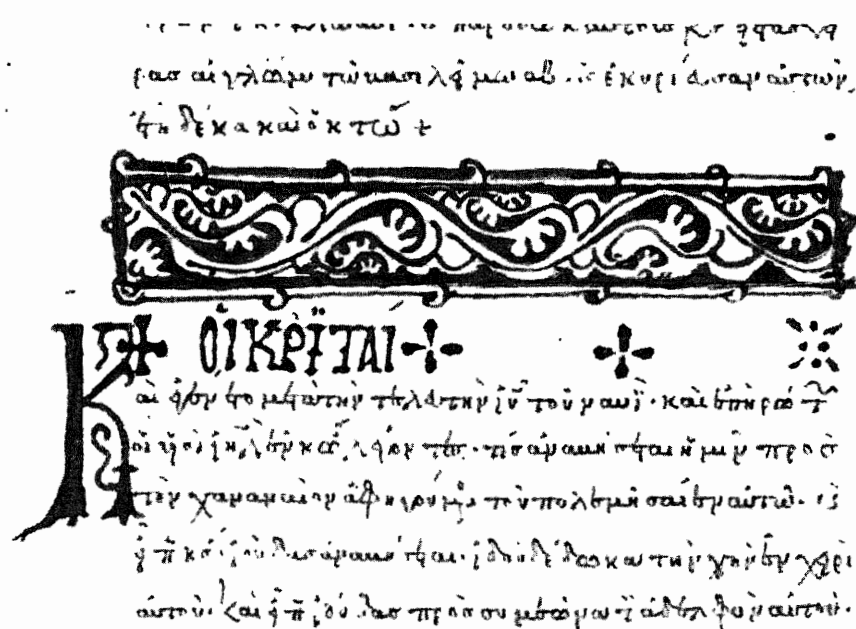 παρέδωκεν αὐτοὺς κς εἰς χεῖ
ρας αἰγλὼμ τῶ βασιλεῖ μωαβ· καὶ ἐκυρίευσεν αὐτῶν
ἔτη δέκα καὶ ὀκτώ +
ΟἹ ΚΡΙΤΑΙ
Καὶ ἐγένετο μετὰ τὴν τελευτὴν ἰῦ τοῦ ναυῒ· καὶ ἐπηρώτ
οἱ υἱοὶ ἰηλ ἐν κω λέγοντες· τίς ἀναβήσεται ἡμῖν πρὸς
τὸν χαναναῖον ἀφηγούμενος τοῦ πολεμῆσαι ἐν αὐτῶ· καὶ
εἶπε κς· ἰούδας ἀναβήσεται· ἰδοὺ δέδωκα τὴν γῆν ἐν χειρὶ
αὐτοῦ· καὶ εἶπεν ἰούδας πρὸς συμεὼν τὸν ἀδελφὸν αὐτοῦ·